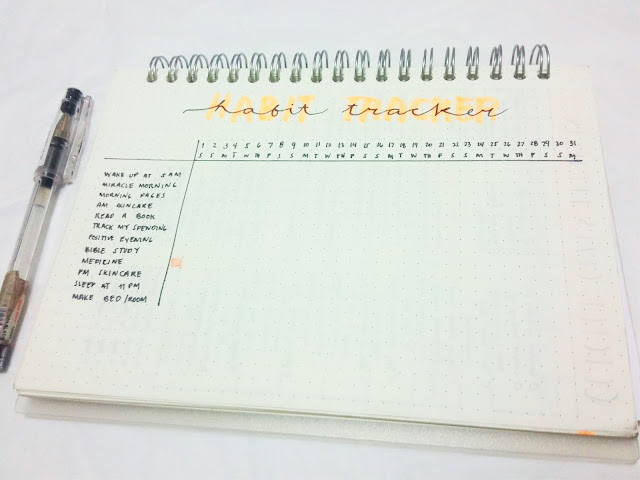 HABIT TRACKER
habit tracker
1 2 3 4 5 6 7 8 9 10 11 12 13 14 15 16 17 18 19 20 21 22 23 24 25 26 27 28 29 30 31
S S M T W TH F S S M T W TH F S S M T W TH F S S M T W TH F S S M
WAKE UP AT 5 AM
MIRACLE MORNING
MORNING PAGES
AM SKINCARE
READ A BOOK
TRACK MY SPENDING
POSITIVE EVENING
BIBLE STUDY
MEDICINE
PM SKINCARE
SLEEP AT 11 PM
MAKE BED/ROOM